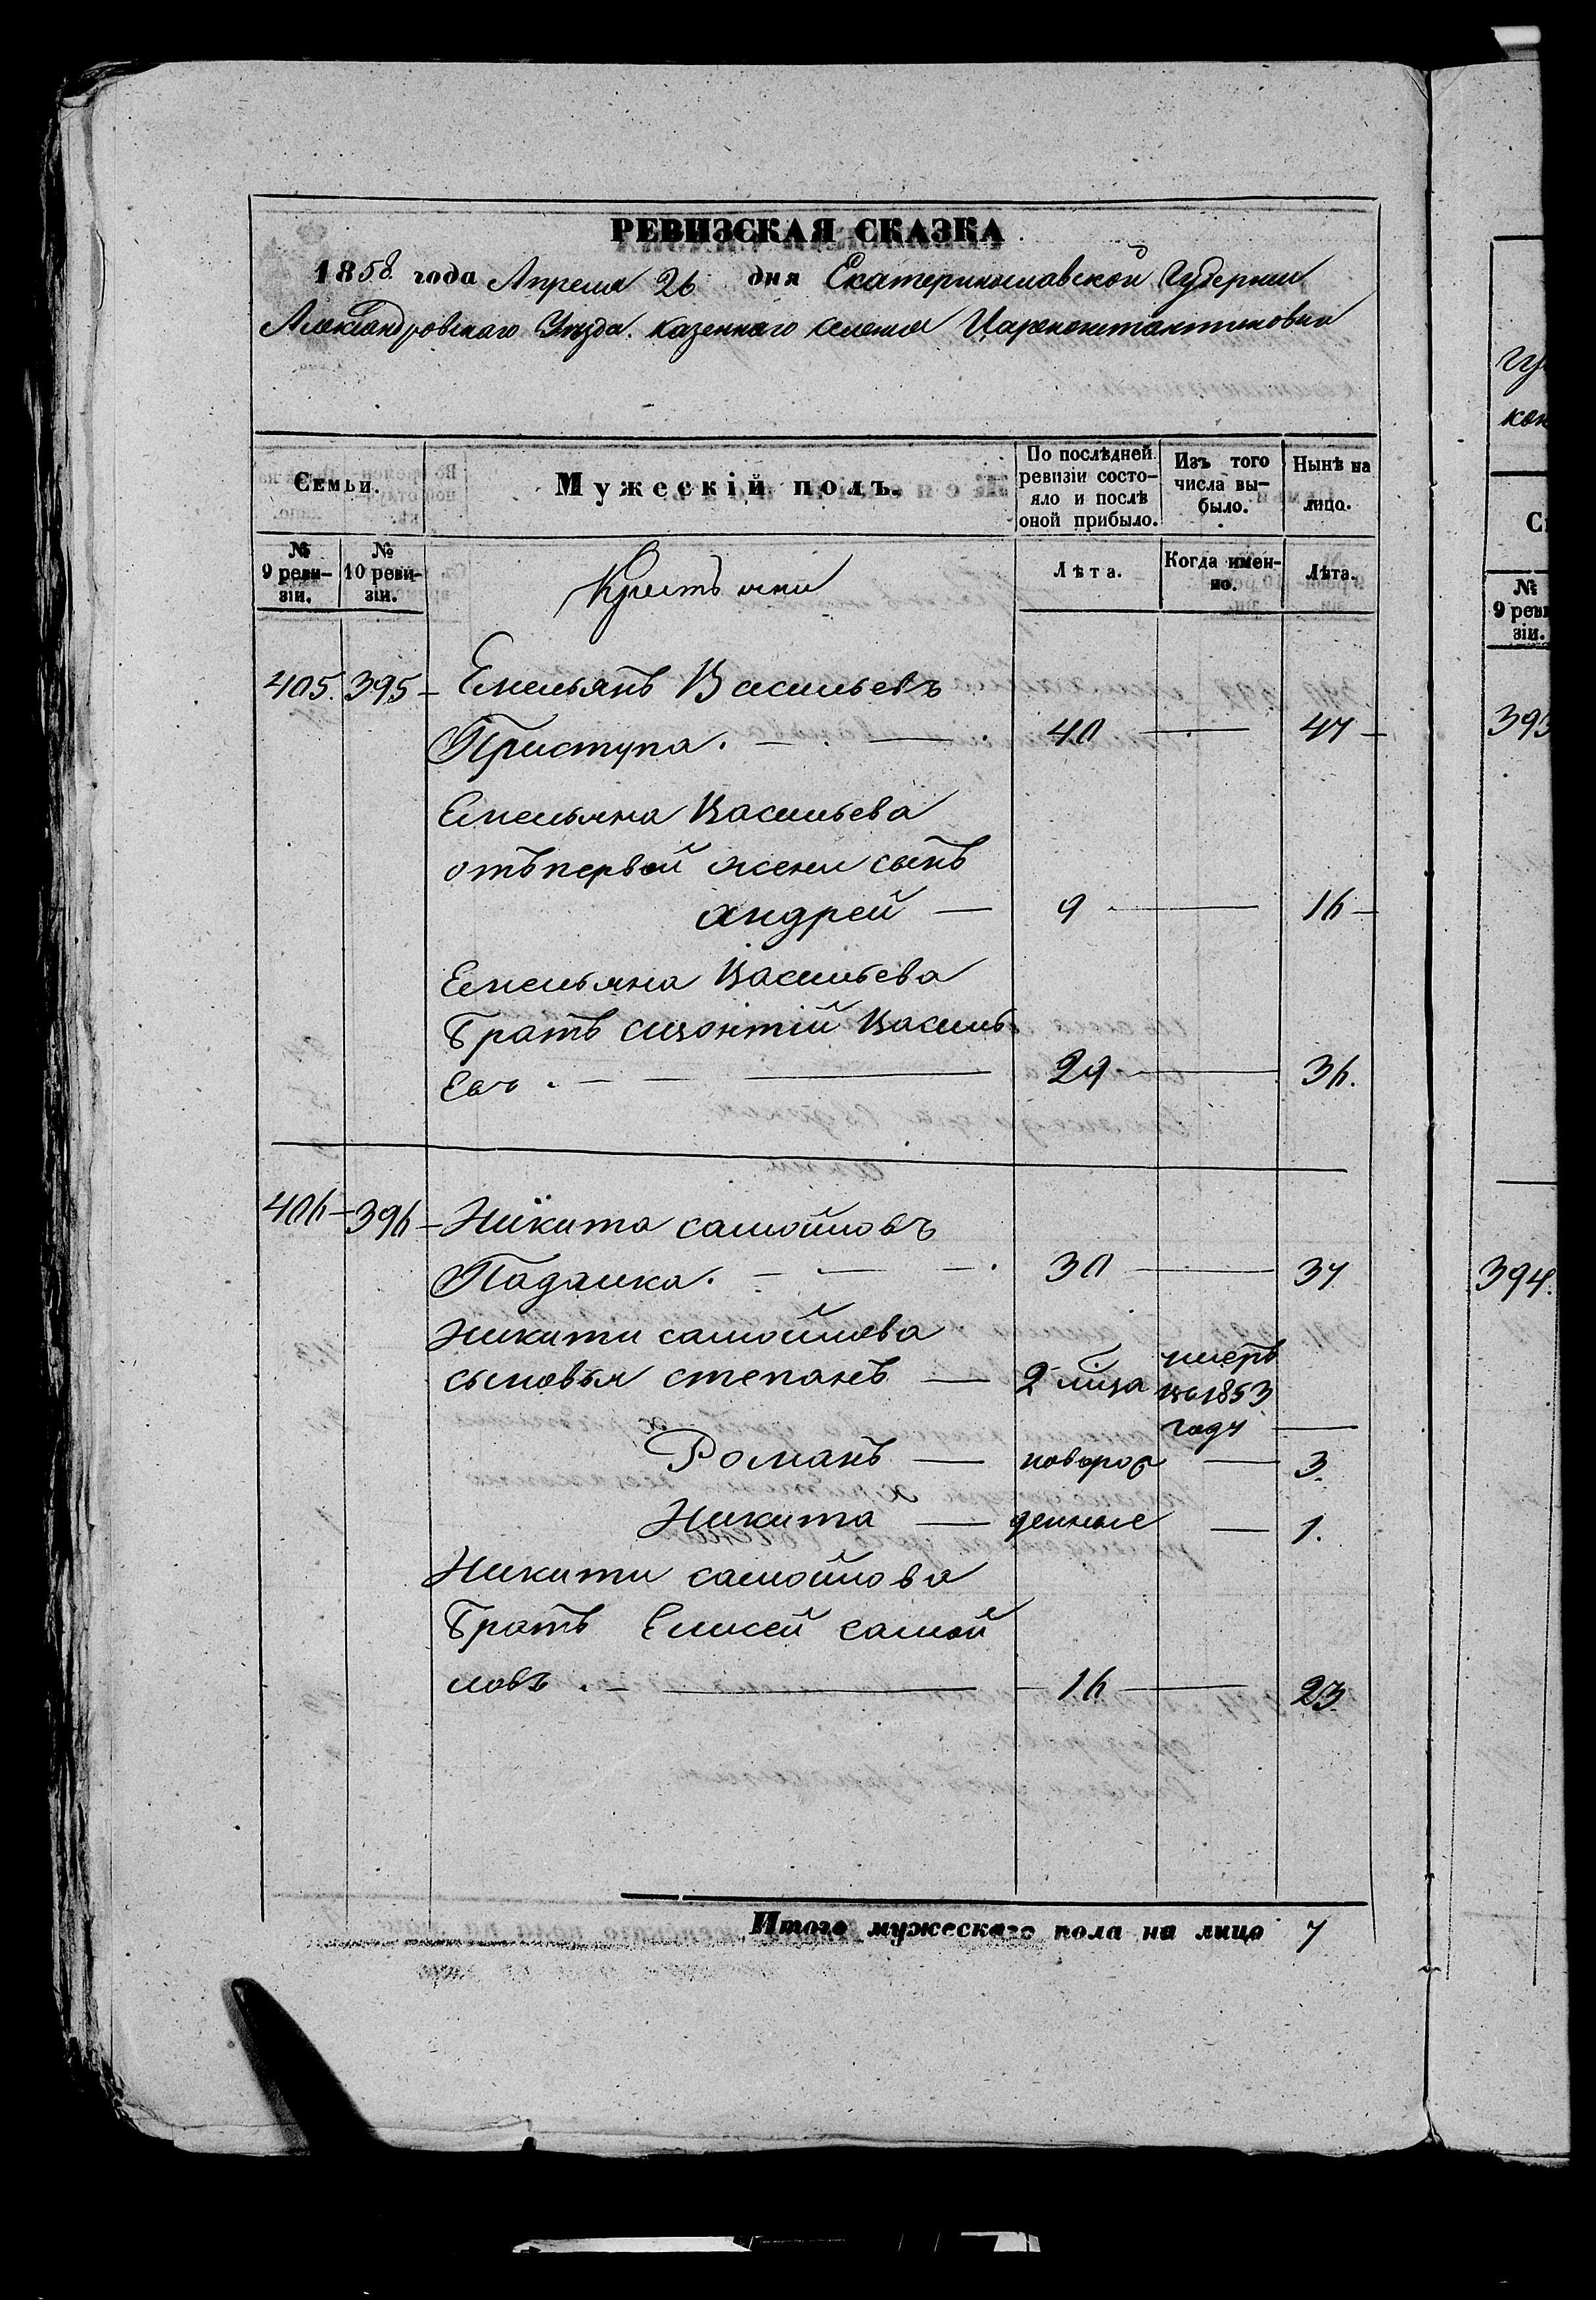 РЕВИЗСКАЯ СКАЗКА
1858 года Апреля 26 дня Екатеринославской Губернии
Александровского Уезда. казенного селения Цареконстантиновки
Семьи.
Мужескій полъ.
По послѣдней ревизіи состо-
яло и послѣ
оной прибыло.
Изъ того
числа вы-
было.
Нынѣ на
лицо.
№
9 реви-
зіи.
№
10 реви-
зіи.
Крестьяни
Лѣта.
Когда имен-
но.
Лѣта.
405. 395 – Емельянъ Васильевъ
Приступа. — 40 — 47 –
Емельяна Васильева
отъ первой жени сынъ
андрей — 9 — 16 –
Емельяна Васильева
Братъ сизонтій Василь
евъ. — 29 — 36.
406 – 396 – Никита самойловъ
Падалка. — 30 — 37
Никити самойлова
сыновья степанъ — 2 лѣта умеръ
во 1853
году —
Романъ — новорож — 3.
Никита — денные — 1.
Никити самойлова
Братъ Елисей самой
ловъ. — 16 — 23.
Итого мужескаго пола на лицо 7
гу
кон
С
№
9 реви
зіи.
393
394.